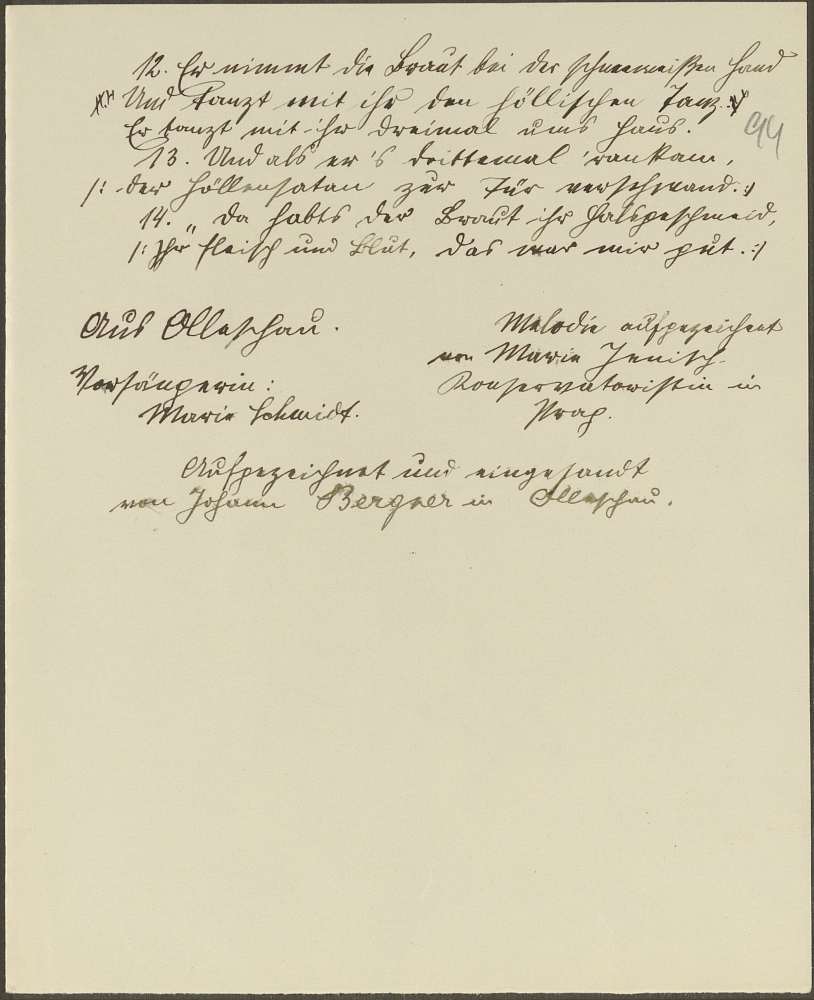 12. Er nimmt die Braut bei der schneeweißen Hand
Und tanzt mit ihr den höllischen Tanz.
Er tanzt mit ihr dreimal ums Haus.
94
13. Und als er's drittemal 'rankam,
/: der Höllensatan zur Tür verschwand. :/
14. „Da habts der Braut ihr Halsgeschmeid,
/: Ihr Fleisch und Blut, das war mir gut. :/
Aus Olleschau.
Melodie aufgezeichnet
von Marie Jenisch.
Vorsängerin:
Konservatoristin in
Marie Schmidt.
Prag.
Aufgezeichnet und eingesandt
von Johann Bergner in Olleschau.